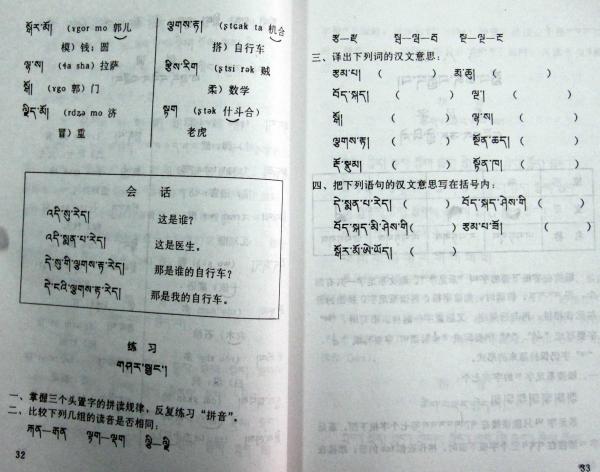 སྒོར་མོ། (ɤgor mo 郭儿
模）钱；圆
ལྷ་ས། (ɬa sha) 拉萨
སྒོ། (ɤgo 郭）门
ལྗིད་མོ། (rdʑə mo 济
冒）重
ལྕགས་རྟ། (ʂtɕak ta 机合
搭）自行车
རྩིས་རིག (ʂtsi rək 贼
柔）数学
སྟག (ʂtək 什斗合）
老虎
会 话
འདི་སུ་རེད། 这是谁？
འདི་སྨན་པ་རེད། 这是医生。
དེ་སུ་གི་ལྕགས་རྟ་རེད། 那是谁的自行车？
དེ་ངའི་ལྕགས་རྟ་རེད། 那是我的自行车。
练 习
གཤར་སྦྱང་།
一、掌握三个头置字的拼读规律，反复练习“拼音”。
二、比较下列几组的读音是否相同：
ཀན—གན ལྟག—ལྡག ལྕི—ལྗི
32
三、译出下列词的汉文意思：
རྩམ་པ། （ ） མ་ཆུ། （ ）
བོད་སྐད། （ ） ལྔ། （ ）
སྒོ། （ ） ལྷ་ས། （ ）
ལྕགས་རྟ། （ ） སྟོན་ཆད། （ ）
རྡོ་སྣུམ། （ ） སྟོན་ཁ། （ ）
四、把下列语句的汉文意思写在括号内：
དེ་སྨན་པ་རེད། （ ） བོད་སྐད་ཤེས་གི （ ）
བོད་སྐད་མི་ཤེས་གི （ ） རྩམ་པ་ཟོ། （ ）
སྒོར་མོ་ཨེ་ཡོད། （ ）
33